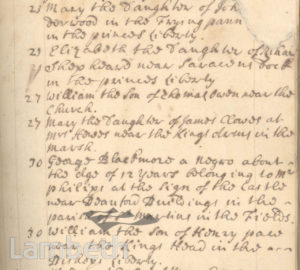 23 Mary the Daughter of Joh
derwood in the Frying pann
in the princes Liberty.
23 Elizabeth the Daughter of
Shepheard near Saracens Dock
in the princes Liberty
27 William the Son of Thomas Owen near the
Church.
27 Mary the Daughter of James Clowes at
Mrs near the Kings Arms in the
Marsh.
30 George Blackmore a Negro about
the age of 12 years belonging to Mr
philips at the Sign of the Castle
near Buildings in the
parish of Martins in the Fields.
30 William the Son of Henry pace
near the Kings Head in the
Bishops Liberty.
Lambeth